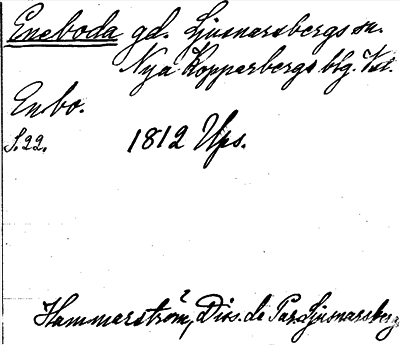 Eneboda gd. Ljusnarsbergs sn.
Nya Kopparbergs blg. Vstl.
Enbo.
S.22. 1812 Ups.
Hammarström, Diss. de Par. Ljusnarsberg